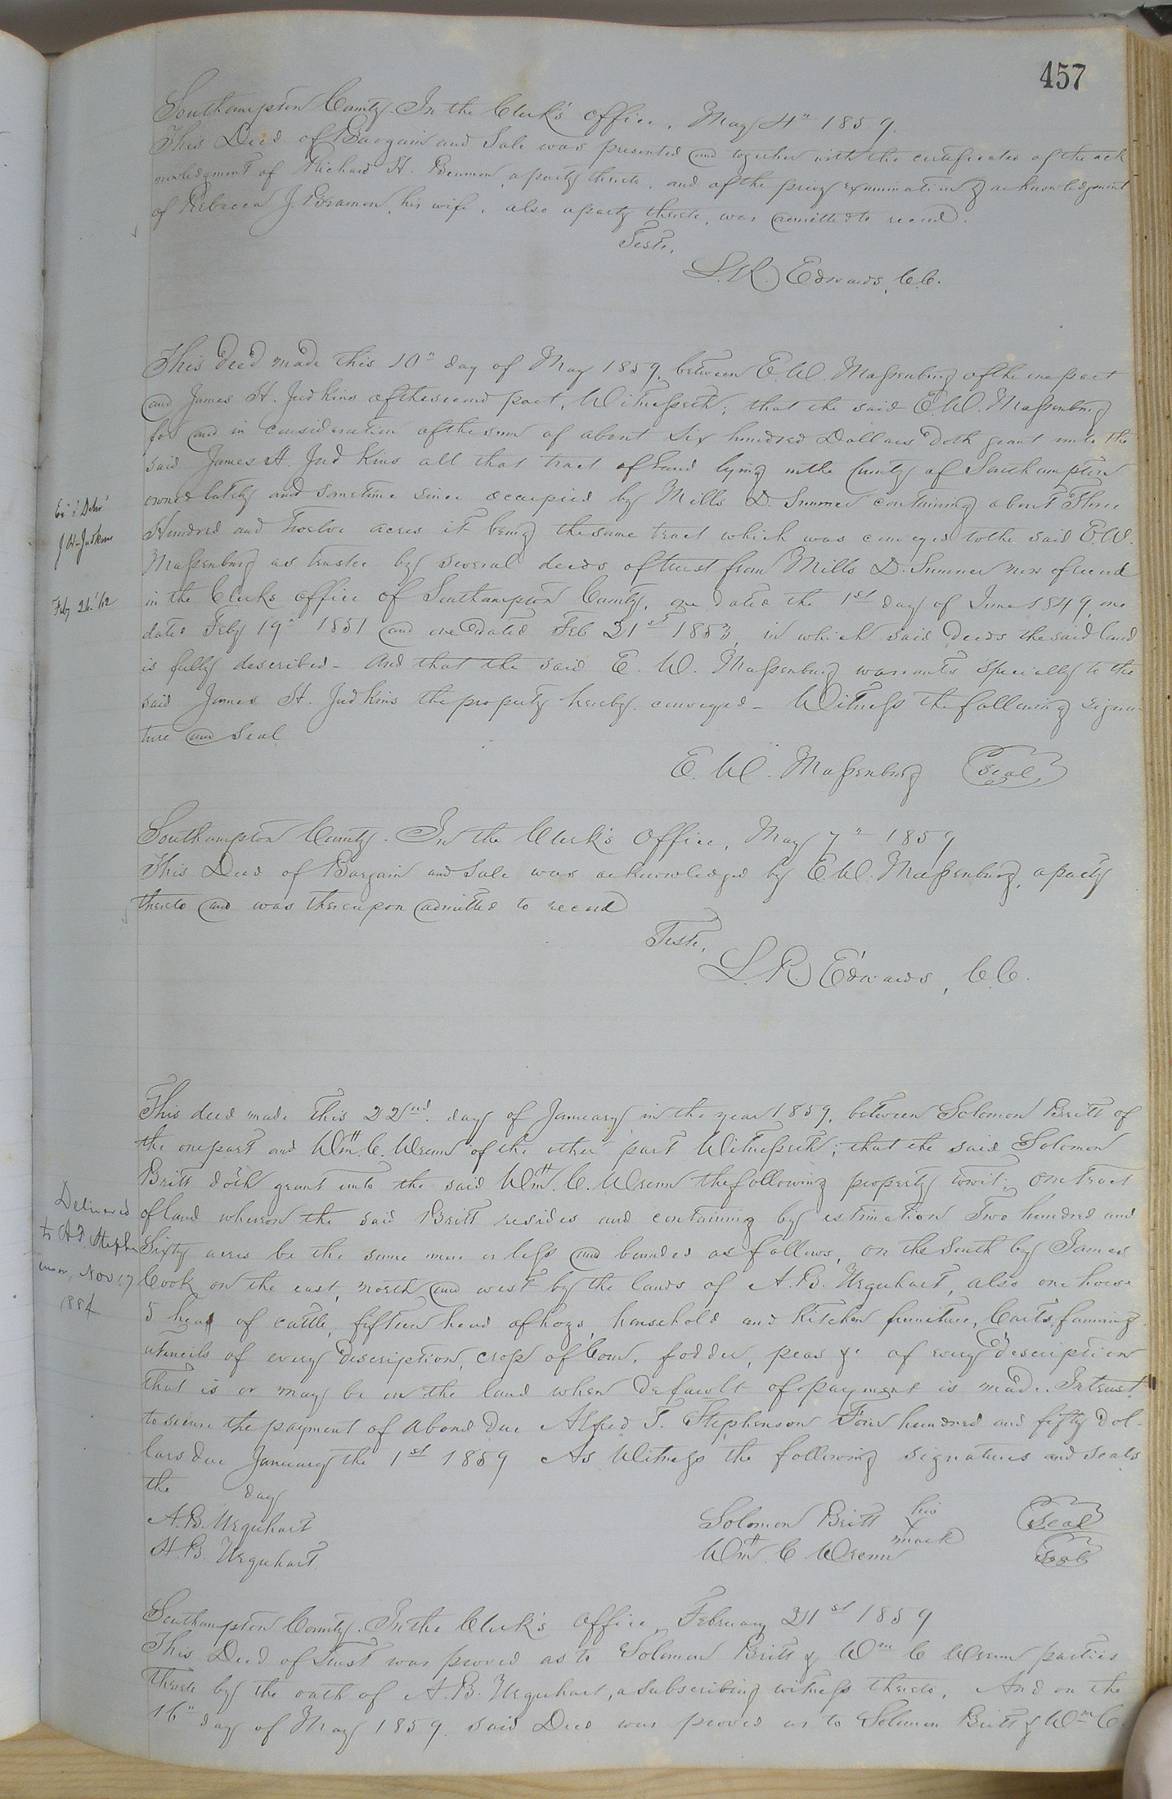 457
Southampton County. In the Clerk's Office, May 4" 1859.
This Deed of Bargain and Sale was presented and together with the certificates of the ack
nowledgment of Richard H. Beamon, a party thereto, and of the privy examination & acknowledgment
of Rebecca J. Beamon, his wife, also a party thereto, was admitted to record.
Teste,
L. R. Edwards, C.C.
This deed made this 10" day of May 1859, between E. W. Massenburg of the one part
and James H. Judkins of the second part, Witnesseth; that the said E. W. Massenburg
for and in consideration of the sum of about six hundred Dollars doth grant unto the
said James H. Judkins all that tract of Land lying in the County of Southampton
owned lately and sometime since occupied by Mills D. Sumner containing about Three
Hundred and Twelve acres it being the same tract which was conveyed to the said E. W.
Massenburg as trustee by several deeds of trust from Mills D. Sumner now of record
in the Clerks office of Southampton County, one dated the 1st day of June 1849, one
dated Feby 19" 1851 and one dated Feb 21st 1853, in which said deeds the said land
is fully described - And that the said E. W. Massenburg warrants specially to the
said James H. Judkins the property hereby conveyed - Witness the following signa-
ture and seal
E. W. Massenburg (Seal)
Ex'd & Deliv'd
J H Judkins
Feby 26 '62
Southampton County. In the Clerk's Office, May 7" 1859
This Deed of Bargain and Sale was acknowledged by E. W. Massenburg, a party
thereto and was thereupon admitted to record
Teste,
L. R. Edwards, C.C.
This deed made this 22nd day of January in the year 1859, between Solomon Britt of
the one part and Wm. C. Wrenn of the other part Witnesseth; that the said Solomon
Britt doth grant unto the said Wm. C. Wrenn the following property towit; one tract
of land whereon the said Britt resides and containing by estimation Two hundred and
Sixty acres be the same more or less and bounded as follows, on the South by James
Cook on the east, north and west by the lands of A. B. Urquhart, also one horse
5 head of cattle, fifteen head of hogs, household and Kitchen furniture, Carts, farming
utencils of every description, crop of Corn, fodder, peas &c of every description
that is or may be on the land when default of payment is made. In trust
to secure the payment of a bond due Alfred T. Stephenson Four hundred and fifty dol-
lars due January the 1st 1859 As Witness the following signatures and seals
the day
A. B. Urquhart Solomon Britt his X mark (Seal)
H. B. Urquhart Wm. C Wrenn (Seal)
Delivered
to A. T. Stephen
son, Nov 17
1884
Southampton County. In the Clerk's Office, February 21st 1859
This Deed of Trust was proved as to Solomon Britt & Wm C Wrenn parties
thereto by the oath of A. B. Urquhart, a subscribing witness thereto, And on the
16" day of May 1859. said Deed was proved as to Solomon Britt & Wm C.